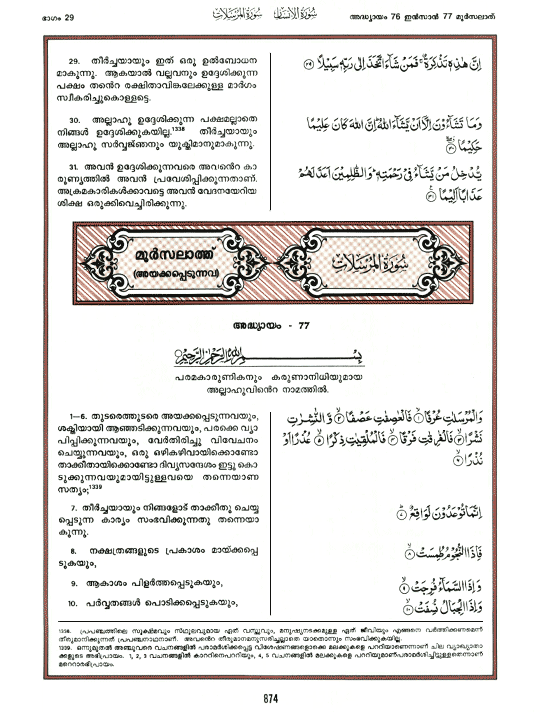 ഭാഗം 29
سُورَةُ الْإِنسَان سُورَةُ الْمُرْسَلَات
അദ്ധ്യായം 76 ഇൻസാൻ 77 മുർസലാത്
29. തീർച്ചയായും ഇത് ഒരു ഉൽബോധന
മാകുന്നു. ആകയാൽ വല്ലവനും ഉദ്ദേശിക്കുന്ന
പക്ഷം തൻെറ രക്ഷിതാവിങ്കലേക്കുള്ള മാർഗം
സ്വീകരിച്ചുകൊള്ളട്ടെ.
إِنَّ هَٰذِهِ تَذْكِرَةٌ ۖ فَمَن شَاءَ اتَّخَذَ إِلَىٰ رَبِّهِ سَبِيلًا ٢٩
30. അല്ലാഹു ഉദ്ദേശിക്കുന്ന പക്ഷമല്ലാതെ
നിങ്ങൾ ഉദ്ദേശിക്കുകയില്ല.1338 തീർച്ചയായും
അല്ലാഹു സർവ്വജ്ഞനും യുക്തിമാനുമാകുന്നു.
وَمَا تَشَاءُونَ إِلَّا أَن يَشَاءَ اللَّهُ ۚ إِنَّ اللَّهَ كَانَ عَلِيمًا
حَكِيمًا ٣٠
31. അവൻ ഉദ്ദേശിക്കുന്നവരെ അവൻെറ കാ
രുണ്യത്തിൽ അവൻ പ്രവേശിപ്പിക്കുന്നതാണ്.
അക്രമകാരികൾക്കാവട്ടെ അവൻ വേദനയേറിയ
ശിക്ഷ ഒരുക്കിവെച്ചിരിക്കുന്നു.
يُدْخِلُ مَن يَشَاءُ فِي رَحْمَتِهِ ۚ وَالظَّالِمِينَ أَعَدَّ لَهُمْ
عَذَابًا أَلِيمًا ٣١
മുർസലാത്ത്
(അയക്കപ്പെടുന്നവ)
سُورَةُ الْمُرْسَلَات
അദ്ധ്യായം - 77
بِسْمِ اللَّهِ الرَّحْمَٰنِ الرَّحِيمِ
പരമകാരുണികനും കരുണാനിധിയുമായ
അല്ലാഹുവിൻെറ നാമത്തിൽ.
1—6. തുടരെത്തുടരെ അയക്കപ്പെടുന്നവയും,
ശക്തിയായി ആഞ്ഞടിക്കുന്നവയും, പരക്കെ വ്യാ
പിപ്പിക്കുന്നവയും, വേർതിരിച്ചു വിവേചനം
ചെയ്യുന്നവയും, ഒരു ഒഴികഴിവായിക്കൊണ്ടോ
താക്കീതായിക്കൊണ്ടോ ദിവ്യസന്ദേശം ഇട്ടു കൊ
ടുക്കുന്നവയുമായിട്ടുള്ളവയെ തന്നെയാണ
സത്യം;1339
وَالْمُرْسَلَاتِ عُرْفًا ١ فَالْعَاصِفَاتِ عَصْفًا ٢ وَالنَّاشِرَاتِ
نَشْرًا ٣ فَالْفَارِقَاتِ فَرْقًا ٤ فَالْمُلْقِيَاتِ ذِكْرًا ٥ عُذْرًا أَوْ
نُذْرًا ٦
7. തീർച്ചയായും നിങ്ങളോട് താക്കീതു ചെയ്യ
പ്പെടുന്ന കാര്യം സംഭവിക്കുന്നതു തന്നെയാ
കുന്നു.
إِنَّمَا تُوعَدُونَ لَوَاقِعٌ ٧
8. നക്ഷത്രങ്ങളുടെ പ്രകാശം മായ്ക്കപ്പെ
ടുകയും,
فَإِذَا النُّجُومُ طُمِسَتْ ٨
9. ആകാശം പിളർത്തപ്പെടുകയും,
وَإِذَا السَّمَاءُ فُرِجَتْ ٩
10. പർവ്വതങ്ങൾ പൊടിക്കപ്പെടുകയും,
وَإِذَا الْجِبَالُ نُسِفَتْ ١٠
1338. പ്രപഞ്ചത്തിലെ സൂക്ഷ്മവും സ്ഥൂലവുമായ ഏത് വസ്തുവും, മനുഷ്യനടക്കമുള്ള ഏത് ജീവിയും എങ്ങനെ വർത്തിക്കണമെന്ന്
തീരുമാനിക്കുന്നത് പ്രപഞ്ചനാഥനാണ്. അവൻെറ തീരുമാനമനുസരിച്ചല്ലാതെ യാതൊന്നും സംഭവിക്കുകയില്ല.
1339. ഒന്നുമുതൽ അഞ്ചുവരെ വചനങ്ങളിൽ പരാമർശിക്കപ്പെട്ട വിശേഷണങ്ങളൊക്കെ മലക്കുകളെ പറ്റിയാണെന്നാണ് ചില വ്യാഖ്യാതാ
ക്കളുടെ അഭിപ്രായം. 1, 2, 3 വചനങ്ങളിൽ കാററിനെപററിയും, 4, 5 വചനങ്ങളിൽ മലക്കുകളെ പററിയുമാണ്പരാമർശിച്ചിട്ടുള്ളതെന്നാണ്
മറെറാരഭിപ്രായം.
874